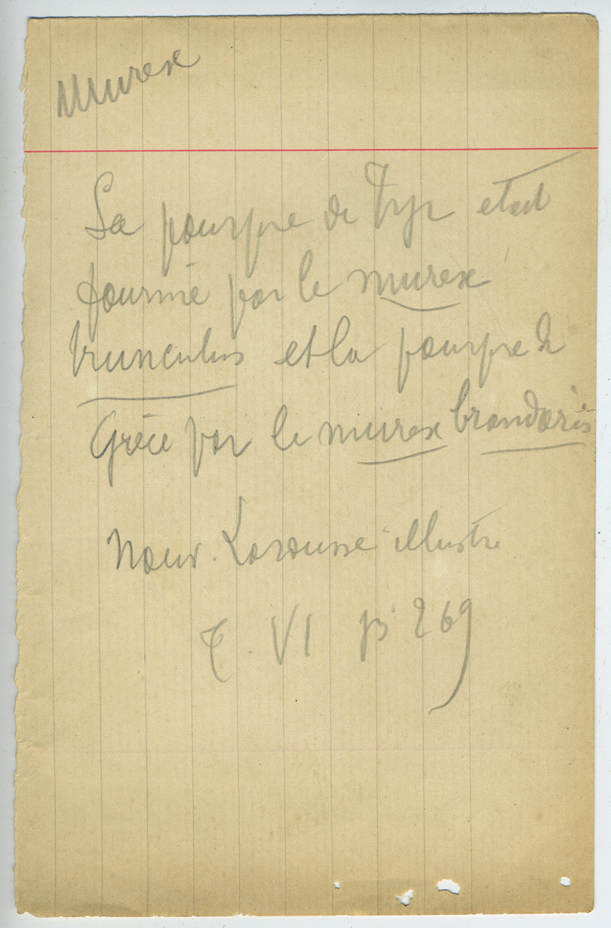 Murex
La pourpre de Tyr etait
fournie par le murex
trunculus et la pourpre de
Grèce par le murex brandaris
Nouv. Larousse illustre
T. VI p. 269